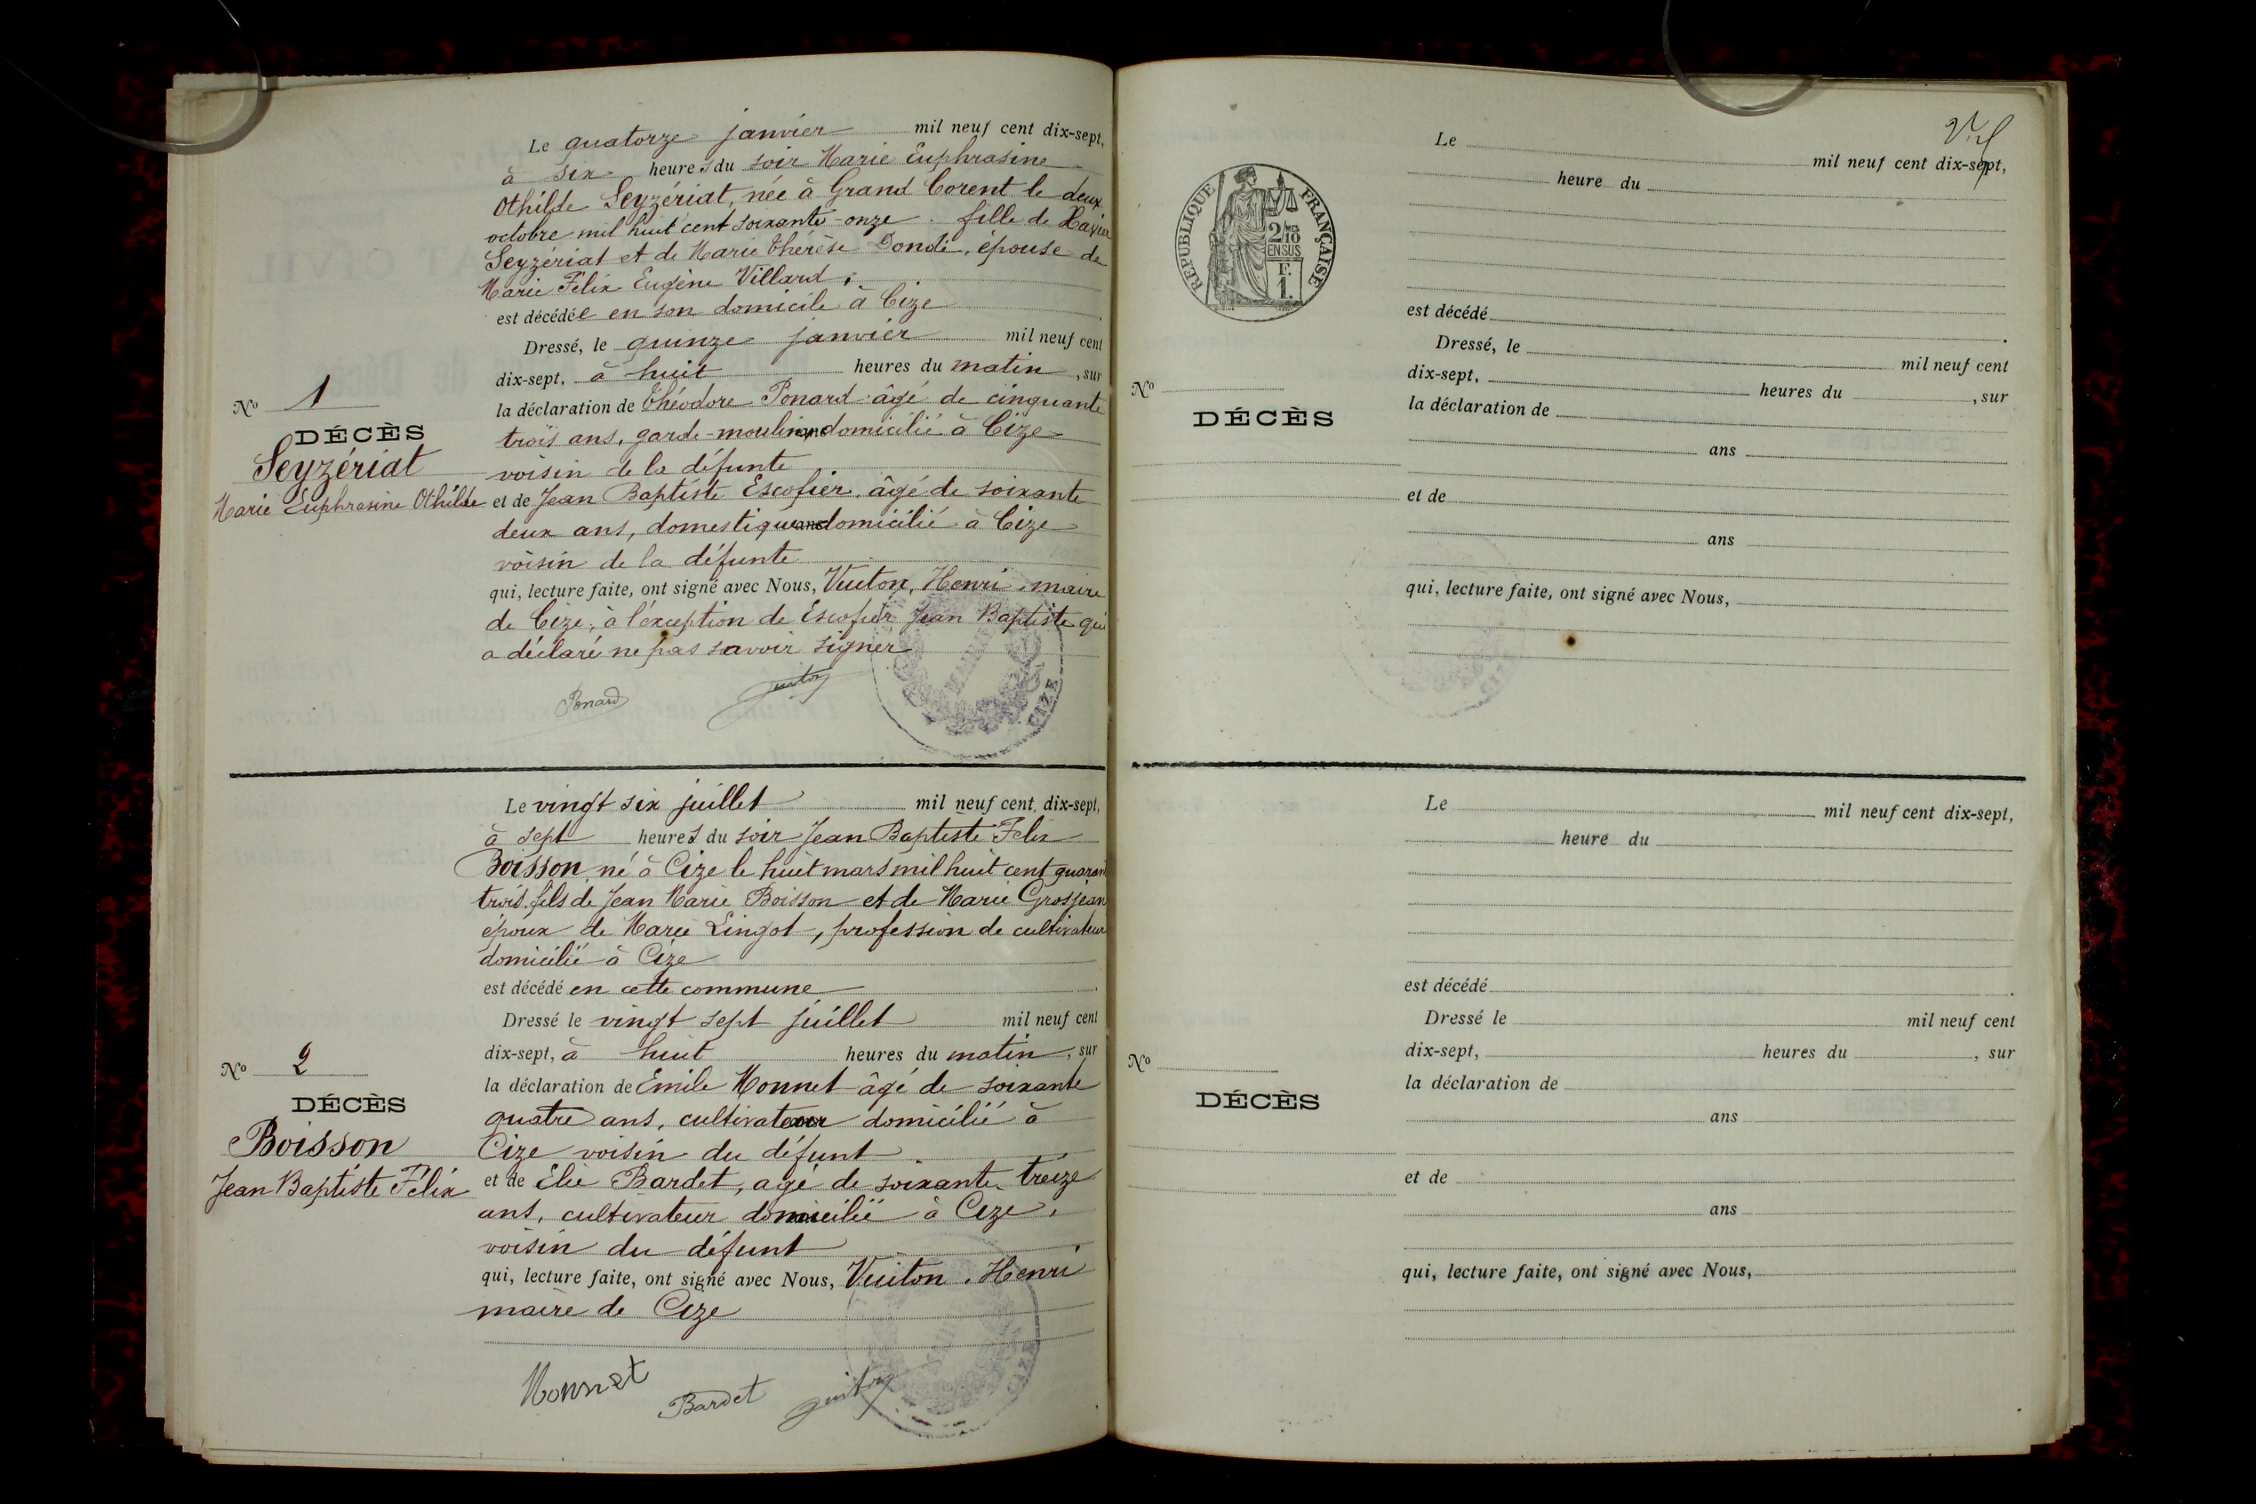 Le quatorze janvier mil neuf cent dix-sept,
à six heures du soir Marie Euphrasine
Othilde Seyzériat, née à Grand Corent le deux
octobre mil huit cent soixante-onze. fille de Xavier
Seyzériat et de Marie Thérèse Dondé, épouse de
Marie Félix Eugène Villard,
est décédée en son domicile à Cize
Dressé, le quinze janvier mil neuf cent
dix-sept, à huit heures du matin, sur
la déclaration de Théodore Ponard âgé de cinquante
trois ans, garde-moulin domicilié à Cize
voisin de la défunte
et de Jean Baptiste Escofier, âgé de soixante
deux ans, domestique domicilié à Cize
voisin de la défunte
qui, lecture faite, ont signé avec Nous, Vuiton, Henri, maire
de Cize, à l'exception de Escofier Jean Baptiste qui
a déclaré ne pas savoir signer
Ponard Vuiton
MAIRIE CIZE
No 1
DÉCÈS
Seyzériat
Marie Euphrasine Othilde
Le vingt six juillet mil neuf cent dix-sept,
à sept heures du soir Jean Baptiste Félix
Boisson, né à Cize le huit mars mil huit cent quarant
trois. fils de Jean Marie Boisson et de Marie Grosjean
époux de Marie Lingot, profession de cultivateur
domicilié à Cize
est décédé en cette commune
Dressé le vingt sept juillet mil neuf cent
dix-sept, à huit heures du matin, sur
la déclaration de Emile Monnet âgé de soixante
quatre ans, cultivateur domicilié à
Cize voisin du défunt
et de Elie Bardet, agé de soixante treize
ans, cultivateur domicilié à Cize,
voisin du défunt
qui, lecture faite, ont signé avec Nous, Vuiton, Henri
maire de Cize
Monnet Bardet Vuiton
CIZE
No 2
DÉCÈS
Boisson
Jean Baptiste Félix
Le mil neuf cent dix-sept,
heure du
RÉPUBLIQUE FRANÇAISE
2/10 EN SUS
F. 1.
est décédé
Dressé, le mil neuf cent
dix-sept, heures du , sur
la déclaration de
ans
et de
ans
qui, lecture faite, ont signé avec Nous,
No
DÉCÈS
Le mil neuf cent dix-sept,
heure du
est décédé
Dressé le mil neuf cent
dix-sept, heures du , sur
la déclaration de
ans
et de
ans
qui, lecture faite, ont signé avec Nous,
No
DÉCÈS